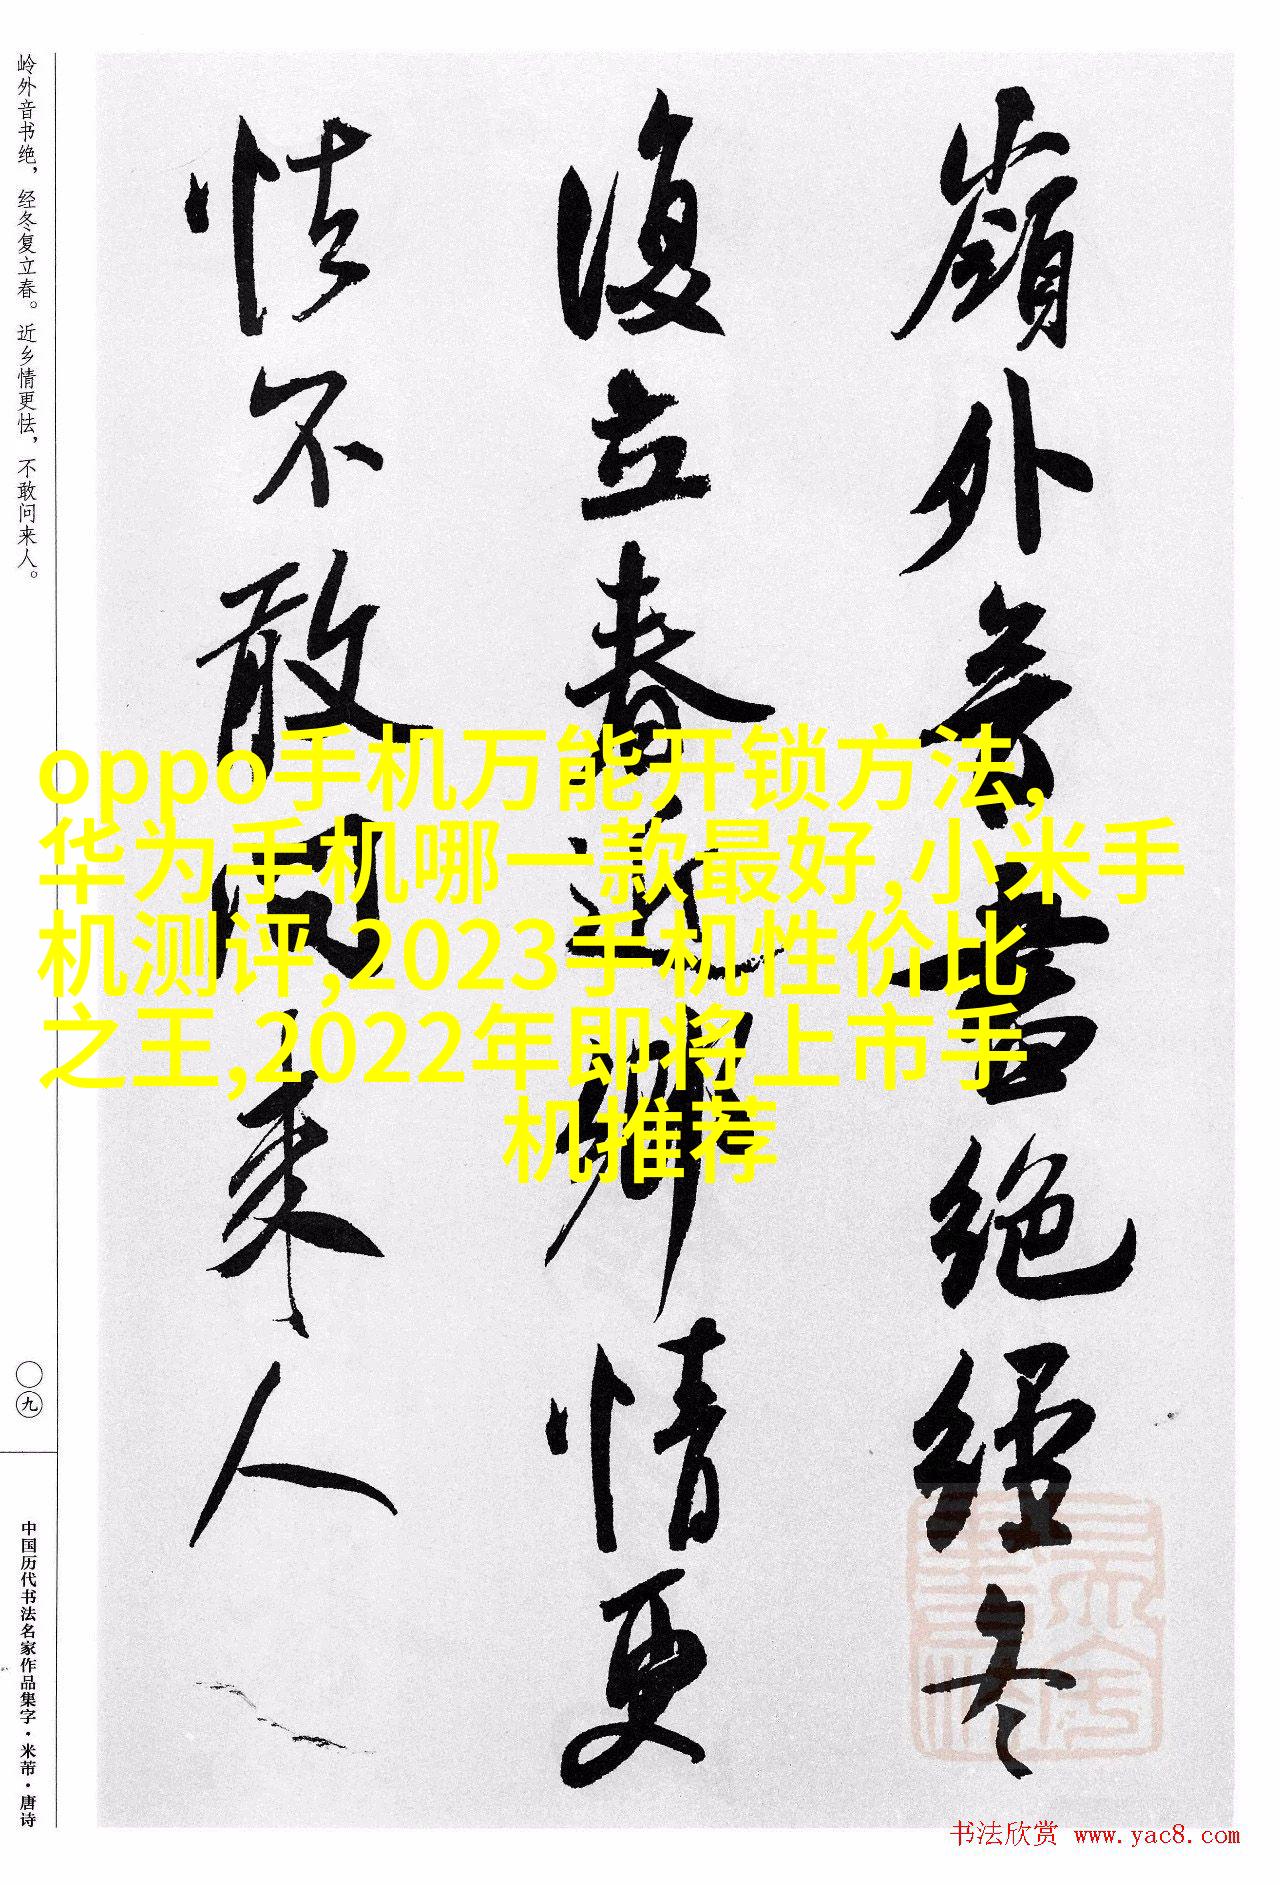 岭外音书绝，经冬复立春。近乡情更怯，不敢问来人。
嶺外音書絕經冬
復立春近鄉情更
怯不敢问来人
oppo手机万能开锁方法,
华为手机哪一款最好,小米手
机测评,2023手机性价比
之王,2022年即将上市手
机推荐
〇九
中国历代书法名家作品集字·米芾·唐诗
书法欣赏 www.yac8.com